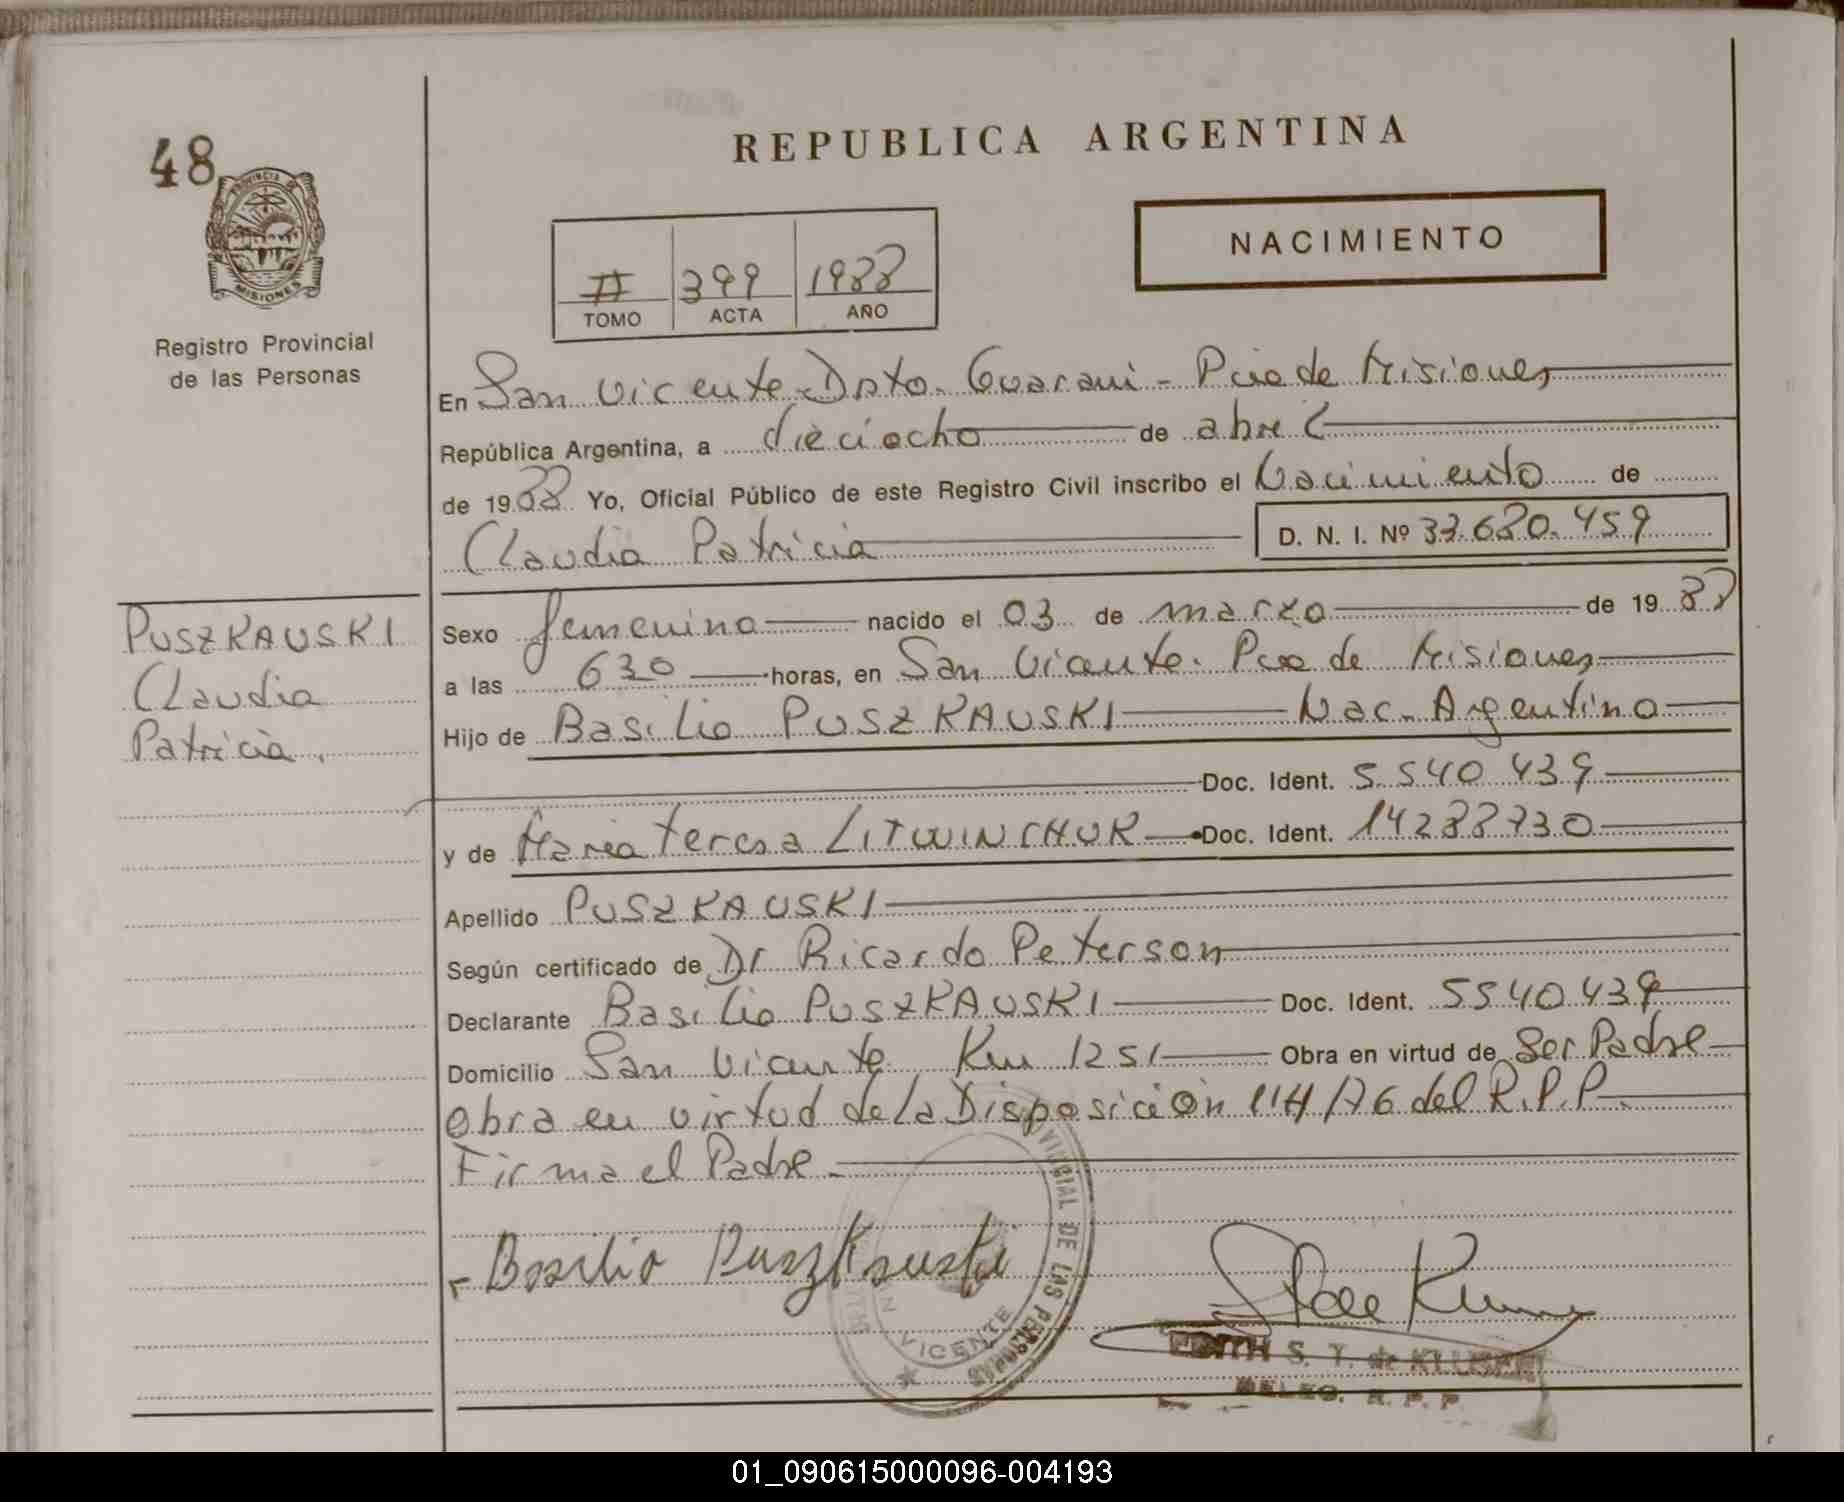 48
PROVINCIA DE
MISIONES
Registro Provincial
de las Personas
REPUBLICA ARGENTINA
NACIMIENTO
II 399 1988
TOMO ACTA AÑO
En San Vicente-Dpto. Guarani - Pcia de Misiones
República Argentina, a dieciocho de abril
de 1988 Yo, Oficial Público de este Registro Civil inscribo el Nacimiento de
Claudia Patricia D. N. I. Nº 33.680.459
PUSZKAUSKI
Claudia
Patricia.
Sexo femenino nacido el 03 de marzo de 1988
a las 630 horas, en San Vicente. Pcia de Misiones
Hijo de Basilio PUSZKAUSKI Nac. Argentina
Doc. Ident. 5.540.439
y de Maria Teresa LITWINCHUK Doc. Ident. 14288730
Apellido PUSZKAUSKI
Según certificado de Dr Ricardo Peterson
Declarante Basilio PUSZKAUSKI Doc. Ident. 5540439
Domicilio San Vicente Km 1251 Obra en virtud de Ser Padre
Obra en virtud de la Disposición /76 del R.P.P.
Firma el Padre
Basilio Puszkauski
VICENTE
DE LAS PERSONAS
EDITH S. T. de
DELEG. R. P. P.
01_090615000096-004193